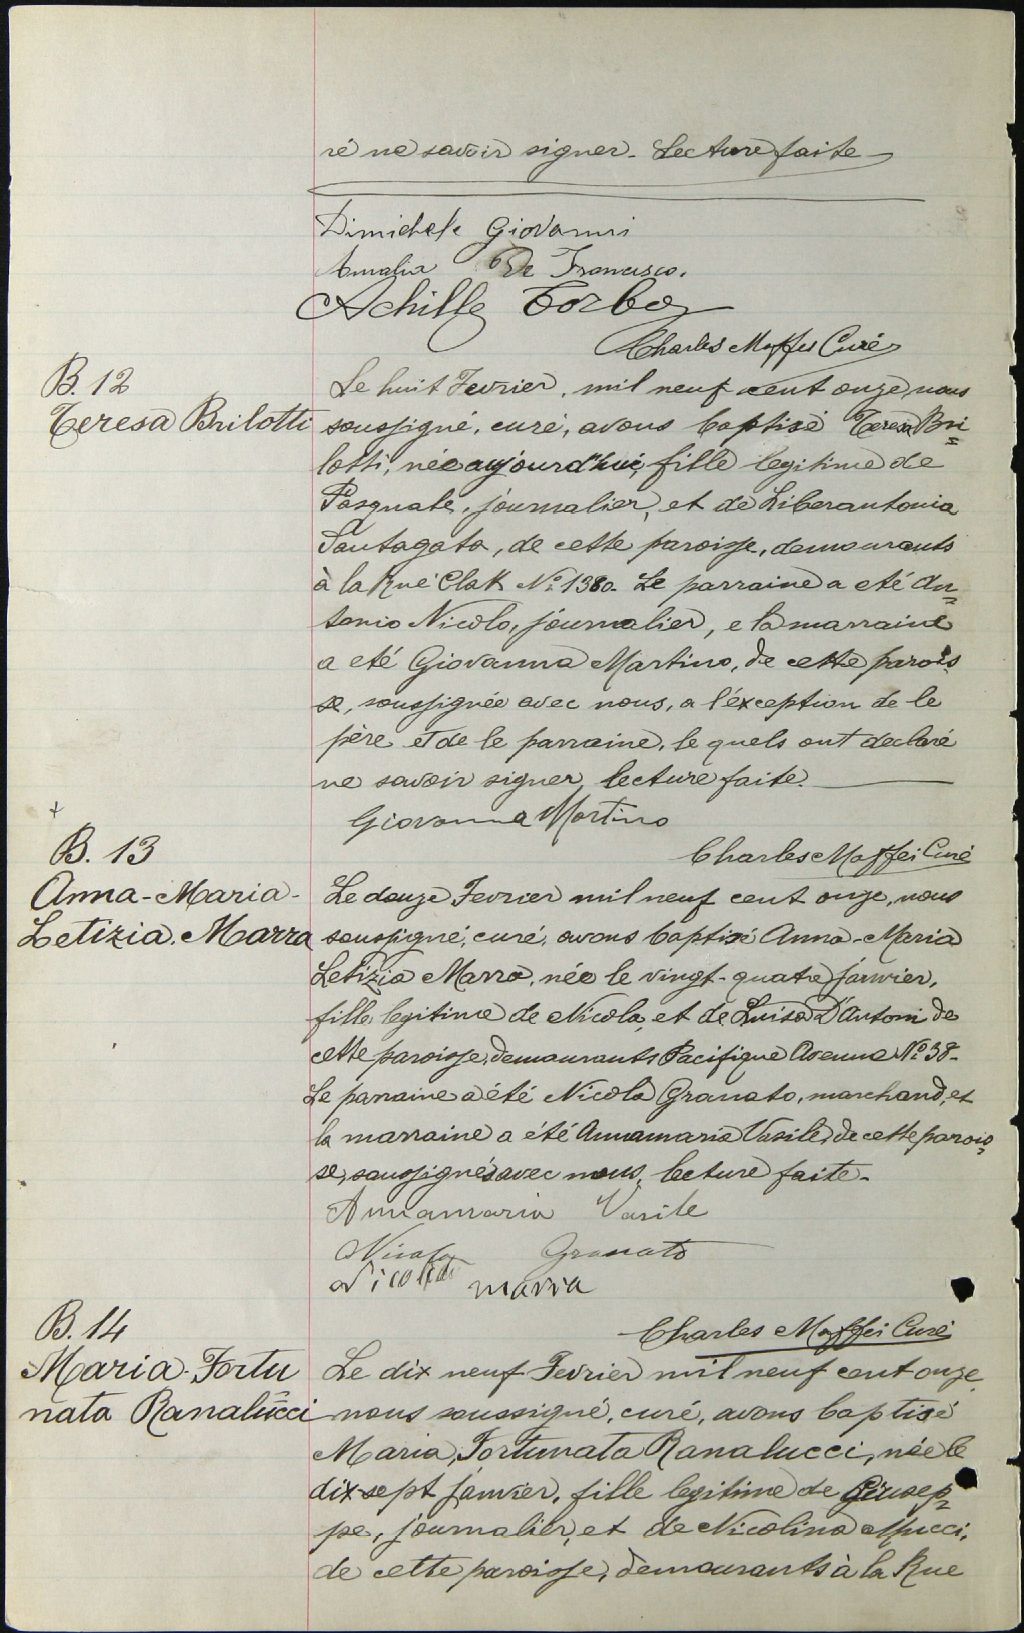 ré ne savoir signer. Lecture faite
Dimichele Giovanni
Amalia De Francisco.
Achille Corbo
Charles Maffei Curé
B. 12
Teresa Brilotti
Le huit Fevrier, mil neuf cent onze, nous
soussigné, curé, avons baptisé Teresa Bri=
lotti, née aujourd'hui, fille legitime de
Pasquale, journalier, et de Liberantonia
Santagata, de cette paroisse, demourants
à la Rue Clak No 1380. Le parraine a eté An=
tonio Nicolo, journalier, e la marraine
a eté Giovanna Martino, de cette parois=
se, soussignée avec nous, a l'éxception de le
père et de le parraine, le quels ont declaré
ne savoir signer, lecture faite.
Giovanna Martino
Charles Maffei Curé
B. 13
Anna-Maria-
Letizia. Marra
Le douze Fevrier mil neuf cent onze, nous
soussigné, curé, avons baptisé Anna-Maria
Letizia Marra, née le vingt-quatre janvier,
fille legitime de Nicola, et de Luisa D'Antoni de
cette paroisse, demourants Pacifique Avenue No 38.
Le parraine a été Nicola Granato, marchand, et
la marraine a été Annamaria Vasile, de cette parois=
se, soussignés avec nous, lecture faite.
Annamaria Vasile
Nicola Granato
Nicola marra
Charles Maffei Curé
B. 14
Maria. Fortu
nata Ranalucci
Le dix neuf Fevrier mil neuf cent onze
nous soussigné, curé, avons baptisé
Maria, Fortunata Ranalucci, née le
dix sept janvier, fille legitime de Giusep=
pe, journalier, et de Nicolina Mucci,
de cette paroisse, demourants à la Rue